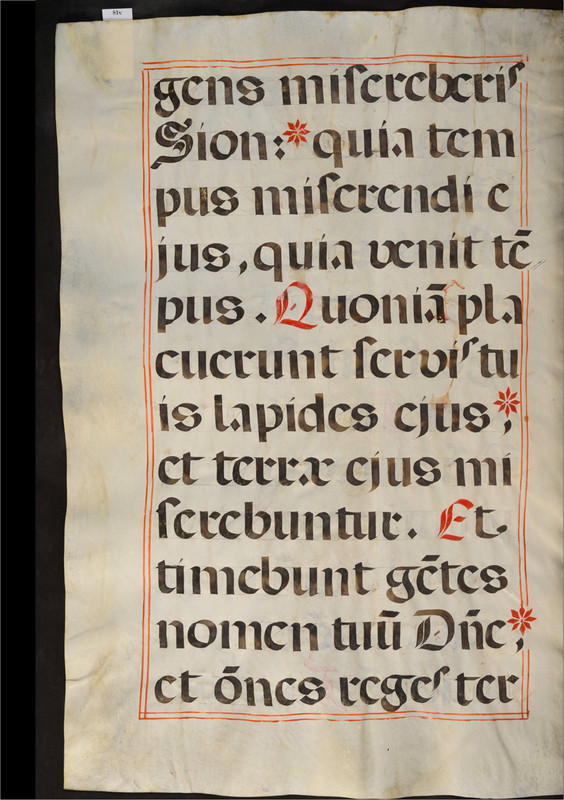 81v
gens misereberis
Sion:* quia tem
pus miserendi e
jus, quia venit tē
pus. Quoniā pla
cuerunt servis tu
is lapides ejus,*
et terræ ejus mi
serebuntur. Et
timebunt gētes
nomen tuū Dñe,*
et ōnes reges ter